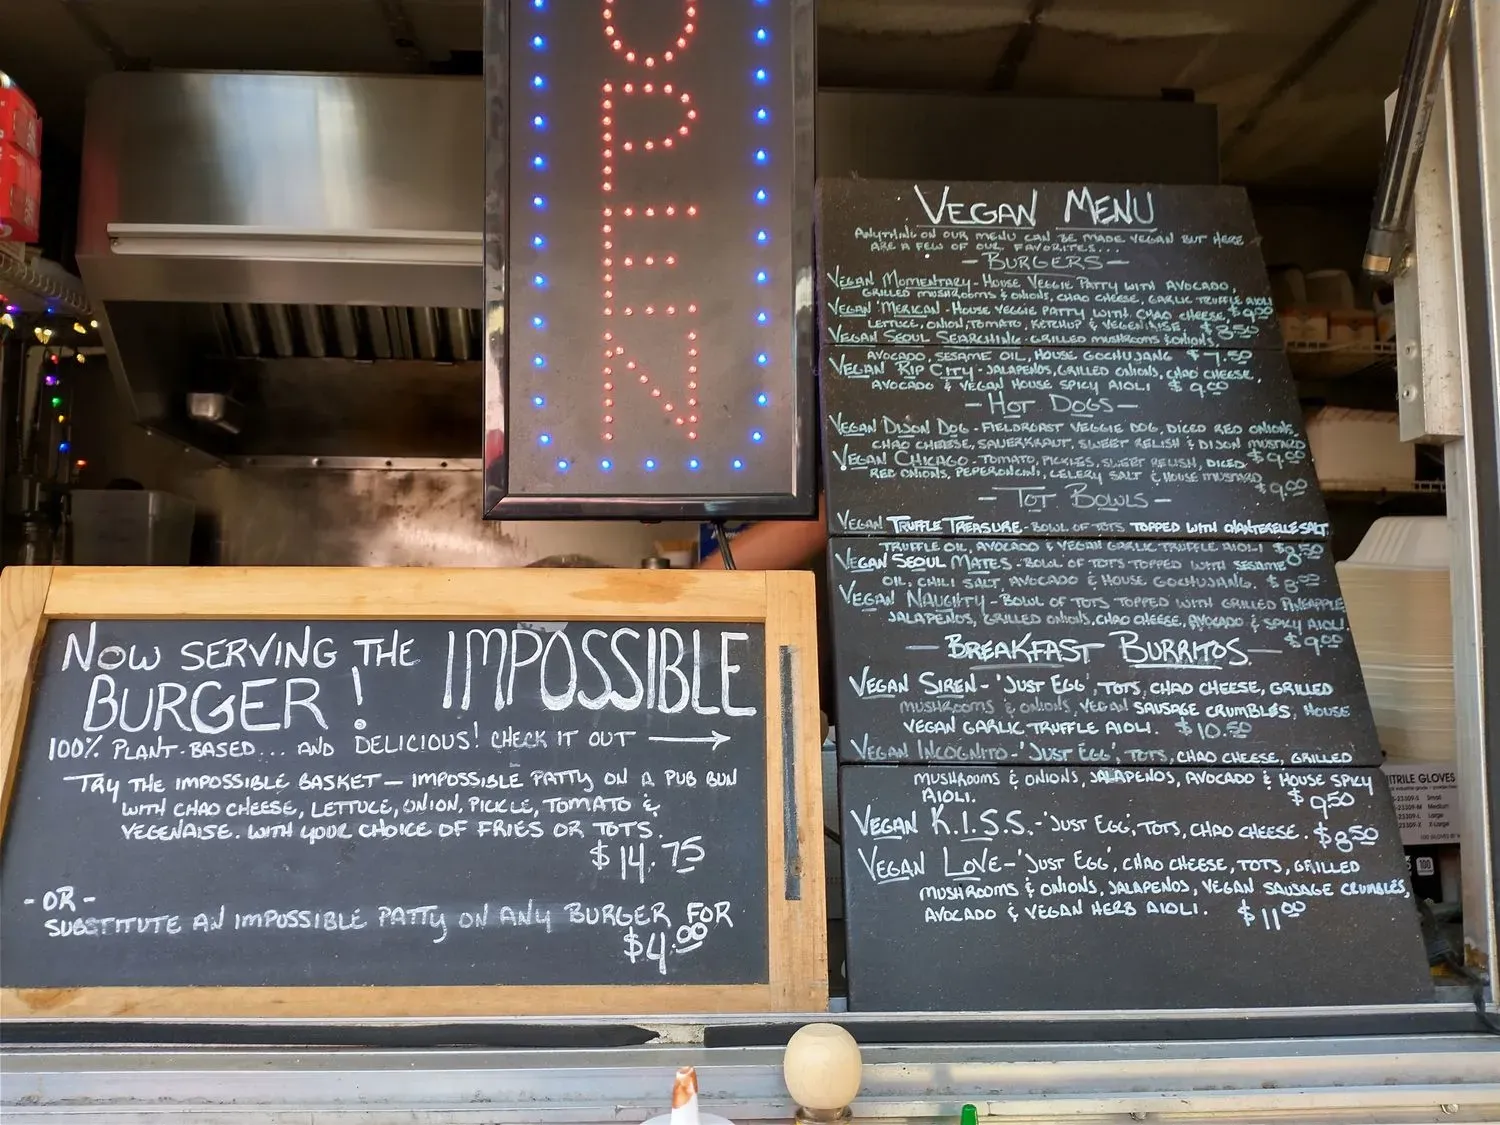 OPEN
NOW SERVING THE IMPOSSIBLE
BURGER!
100% PLANT-BASED... AND DELICIOUS! CHECK IT OUT →
TRY THE IMPOSSIBLE BASKET — IMPOSSIBLE PATTY ON A PUB BUN
WITH CHAO CHEESE, LETTUCE, ONION, PICKLE, TOMATO &
VEGENAISE. WITH YOUR CHOICE OF FRIES OR TOTS.
$14.75
-OR-
SUBSTITUTE AN IMPOSSIBLE PATTY ON ANY BURGER FOR
$4.00
VEGAN MENU
ANYTHING ON OUR MENU CAN BE MADE VEGAN BUT HERE
ARE A FEW OF OUR FAVORITES...
-BURGERS-
VEGAN MOMENTARY-HOUSE VEGGIE PATTY WITH AVOCADO,
GRILLED MUSHROOMS & ONIONS, CHAO CHEESE, GARLIC TRUFFLE AIOLI
$9.00
VEGAN 'MERICAN-HOUSE VEGGIE PATTY WITH CHAO CHEESE,
LETTUCE, ONION, TOMATO, KETCHUP & VEGENAISE. $8.50
VEGAN SEOUL SEARCHING-GRILLED MUSHROOMS & ONIONS,
AVOCADO, SESAME OIL, HOUSE GOCHUJANG $7.50
VEGAN RIP CITY-JALAPENOS, GRILLED ONIONS, CHAO CHEESE,
AVOCADO & VEGAN HOUSE SPICY AIOLI $9.00
-HOT DOGS-
VEGAN DIJON DOG-FIELDROAST VEGGIE DOG, DICED RED ONIONS,
CHAO CHEESE, SAUERKRAUT, SWEET RELISH & DIJON MUSTARD
$9.00
VEGAN CHICAGO-TOMATO, PICKLES, SWEET RELISH, DICED
RED ONIONS, PEPERONCINI, CELERY SALT & HOUSE MUSTARD
$9.00
-TOT BOWLS-
VEGAN TRUFFLE TREASURE-BOWL OF TOTS TOPPED WITH CHANTERELLE SALT,
TRUFFLE OIL, AVOCADO & VEGAN GARLIC TRUFFLE AIOLI $8.50
VEGAN SEOUL MATES-BOWL OF TOTS TOPPED WITH SESAME
OIL, CHILI SALT, AVOCADO & HOUSE GOCHUJANG. $8.00
VEGAN NAUGHTY-BOWL OF TOTS TOPPED WITH GRILLED PINEAPPLE
JALAPENOS, GRILLED ONIONS, CHAO CHEESE, AVOCADO & SPICY AIOLI.
$9.00
-BREAKFAST BURRITOS-
VEGAN SIREN-'JUST EGG', TOTS, CHAO CHEESE, GRILLED
MUSHROOMS & ONIONS, VEGAN SAUSAGE CRUMBLES, HOUSE
VEGAN GARLIC TRUFFLE AIOLI. $10.50
VEGAN INCOGNITO-'JUST EGG', TOTS, CHAO CHEESE, GRILLED
MUSHROOMS & ONIONS, JALAPENOS, AVOCADO & HOUSE SPICY
AIOLI. $9.50
VEGAN K.I.S.S.-'JUST EGG', TOTS, CHAO CHEESE. $8.50
VEGAN LOVE-'JUST EGG', CHAO CHEESE, TOTS, GRILLED
MUSHROOMS & ONIONS, JALAPENOS, VEGAN SAUSAGE CRUMBLES,
AVOCADO & VEGAN HERB AIOLI. $11.00
NITRILE GLOVES
Small
Medium
Large
X-Large
100